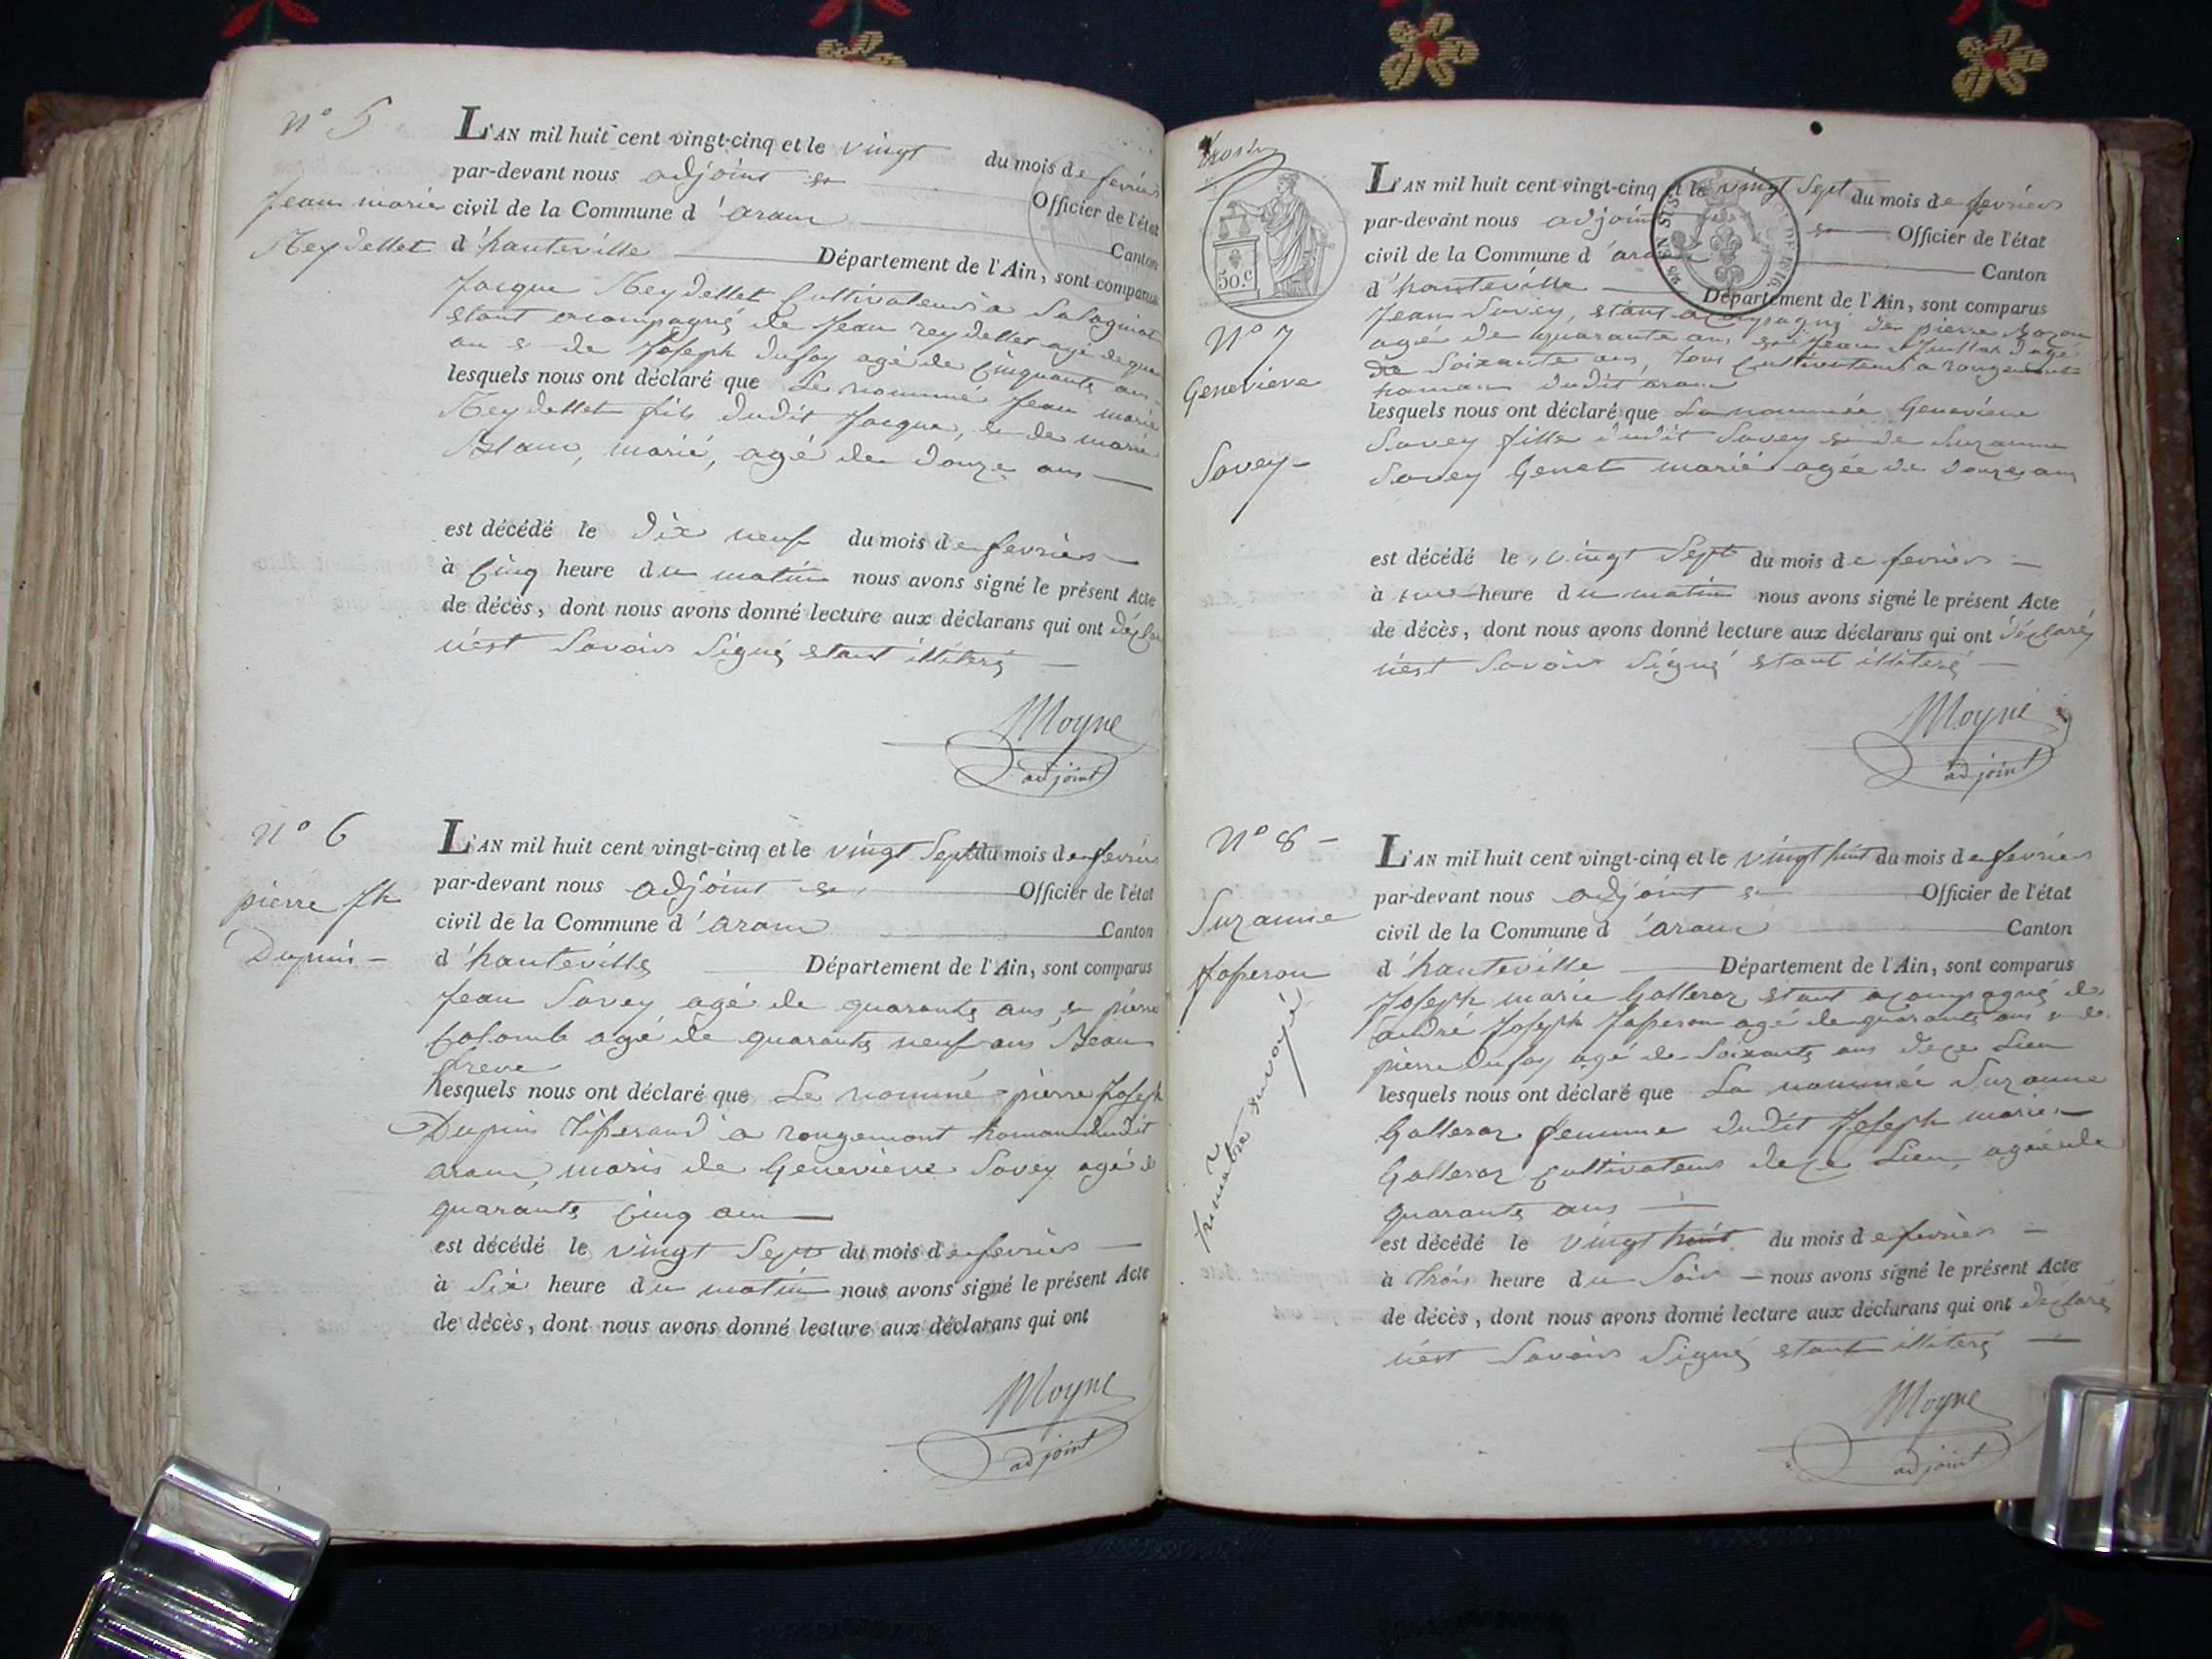 N° 5
Jean marie
Reydellet
L'AN mil huit cent vingt-cinq et le vingt du mois de fevrier
par-devant nous adjoint et Officier de l'état
civil de la Commune d'aran Canton
d'hauteville Département de l'Ain, sont comparus
Jacque Reydellet Cultivateur a
étant acompagné de Jean reydellet agé de
an & de Joseph dufay agé de Cinquante ans
lesquels nous ont déclaré que Le nommé Jean marie
Reydellet fils dudit Jacque, & de marie
Blanc, marié, agé de douze ans
est décédé le dix neuf du mois de fevrier
à Cinq heure du matin nous avons signé le présent Acte
de décès, dont nous avons donné lecture aux déclarans qui ont
n'est Savoir Signé etant illiteré
Moyne
adjoint
N° 6
pierre Jh
Dupuis
L'AN mil huit cent vingt-cinq et le vingt Sept du mois de fevrier
par-devant nous adjoint & Officier de l'état
civil de la Commune d'aran Canton
d'hauteville Département de l'Ain, sont comparus
Jean Savey agé de quarante ans & pierre
Colomb agé de quarante neuf ans Beau
frere
lesquels nous ont déclaré que Le nommé pierre Joseph
Dupuis Tisserand a rougemont hamau dudit
aran, maris de Genevieve Savey agé de
quarante Cinq an
est décédé le vingt Sept du mois de fevrier
à Six heure du matin nous avons signé le présent Acte
de décès, dont nous avons donné lecture aux déclarans qui ont
Moyne
adjoint
50.c
N° 7
Genevieve
Savey
L'AN mil huit cent vingt-cinq et le vingt Sept du mois de fevrier
par-devant nous adjoint & Officier de l'état
civil de la Commune d'aran Canton
d'hauteville Département de l'Ain, sont comparus
Jean Savey, etant acompagné de pierre
agé de quarante ans & Jean agé
de Soixante ans, tous Cultivateurs a rougemont
hamau dudit aran
lesquels nous ont déclaré que La nommée Genevieve
Savey fille dudit Savey & de Suzanne
Savey Genet marié agée de douze ans
est décédé le vingt Sept du mois de fevrier
à une heure du matin nous avons signé le présent Acte
de décès, dont nous avons donné lecture aux déclarans qui ont déclaré
n'est Savoir Signé etant illiteré
Moyne
adjoint
N° 8
Suzanne
Japeron
L'AN mil huit cent vingt-cinq et le vingt huit du mois de fevrier
par-devant nous adjoint & Officier de l'état
civil de la Commune d'aran Canton
d'hauteville Département de l'Ain, sont comparus
Joseph marie Galleraz etant acompagné de
andré Joseph Japeron agé de quarante ans & de
pierre dufay agé de Soixante ans de ce Lieu
lesquels nous ont déclaré que La nommée Suzanne
Galleraz femme dudit Joseph marie
Galleraz Cultivateur de ce Lieu agée de
quarante ans
est décédé le vingt huit du mois de fevrier
à trois heure du Soir nous avons signé le présent Acte
de décès, dont nous avons donné lecture aux déclarans qui ont déclaré
n'est Savoir Signé etant illiteré
Moyne
adjoint